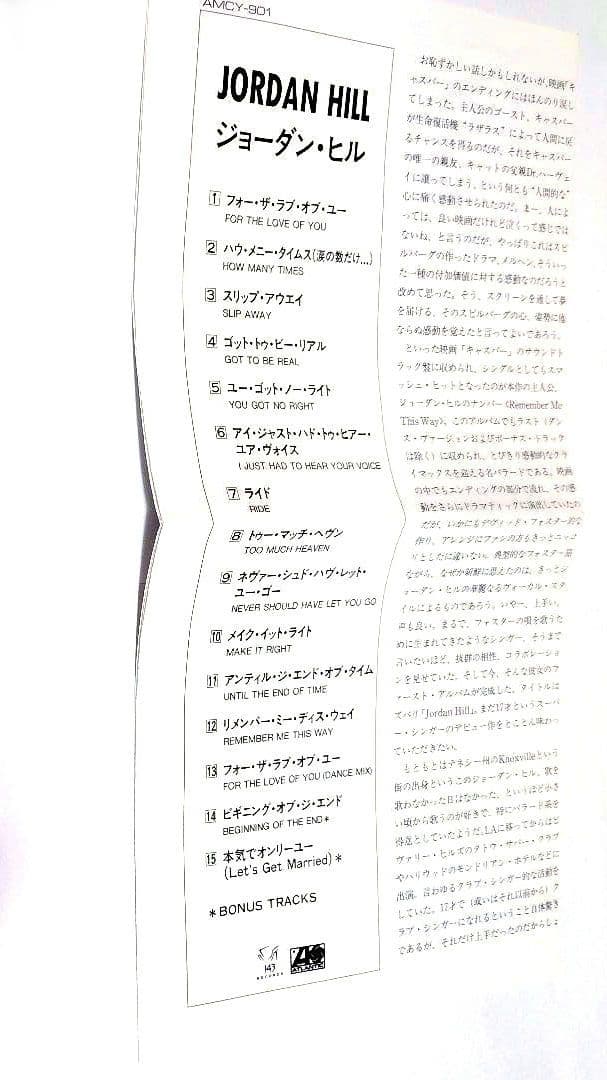 AMCY-901
JORDAN HILL
ジョーダン・ヒル
1 フォー・ザ・ラブ・オブ・ユー
FOR THE LOVE OF YOU
2 ハウ・メニー・タイムス(涙の数だけ...)
HOW MANY TIMES
3 スリップ・アウエイ
SLIP AWAY
4 ゴット・トゥ・ビー・リアル
GOT TO BE REAL
5 ユー・ゴット・ノー・ライト
YOU GOT NO RIGHT
6 アイ・ジャスト・ハド・トゥ・ヒアー・
ユア・ヴォイス
I JUST HAD TO HEAR YOUR VOICE
7 ライド
RIDE
8 トゥー・マッチ・ヘヴン
TOO MUCH HEAVEN
9 ネヴァー・シュド・ハヴ・レット・
ユー・ゴー
NEVER SHOULD HAVE LET YOU GO
10 メイク・イット・ライト
MAKE IT RIGHT
11 アンティル・ジ・エンド・オブ・タイム
UNTIL THE END OF TIME
12 リメンバー・ミー・ディス・ウェイ
REMEMBER ME THIS WAY
13 フォー・ザ・ラブ・オブ・ユー
FOR THE LOVE OF YOU (DANCE MIX)
14 ビギニング・オブ・ジ・エンド
BEGINNING OF THE END*
15 本気でオンリーユー
(Let's Get Married)*
*BONUS TRACKS
143
RECORDS
ATLANTIC
お恥ずかしい話しかもしれないが、映画「キ
ャスパー」のエンディングにはほんのり涙し
てしまった。主人公のゴースト、キャスパー
が生命復活機“ラザラス”によって人間に戻
るチャンスを得るのだが、それをキャスパー
の唯一の親友、キャットの父親Dr.ハーヴェ
イに譲ってしまう、という何とも“人間的な”
心に痛く感動させられたのだ。まー、人によ
っては、良い映画だけれど泣くって感じでは
ないね、と言うのだが、やっぱりこれはスピ
ルバーグの作ったドラマ、メルヘン、そういっ
た一種の付加価値に対する感動なのだろうと
改めて思った。そう、スクリーンを通して夢
を届ける、そのスピルバーグの心、姿勢に他
ならぬ感動を覚えたと言ってよいであろう。
といった映画「キャスパー」のサウンドト
ラック盤に収められ、シングルとしてもスマ
ッシュ・ヒットとなったのが本作の主人公、
ジョーダン・ヒルのナンバー〈Remember Me
This Way〉。このアルバムでもラスト(ダン
ス・ヴァージョンおよびボーナス・トラック
は除く)に収められ、とびきり感動的なクラ
イマックスを迎える名バラードである。映画
の中でもエンディングの部分で流れ、その感
動をさらにドラマティックに演出していたの
だが、いかにもデヴィッド・フォスター的な
作り、アレンジにファンの方もきっとニッコ
リとしたに違いない。典型的なフォスター節
ながら、なぜか新鮮に思えたのは、きっとジ
ョーダン・ヒルの華麗なるヴォーカル・スタ
イルによるものであろう。いやー、上手い。
声も良い。まるで、フォスターの唄を歌うた
めに生まれてきたようなシンガー、そうまで
言いたいほど、抜群の相性、コラボレーショ
ンを見せていた。そして今、そんな彼女のフ
ァースト・アルバムが完成した。タイトルは
ズバリ「Jordan Hill」。まだ17才というスーパ
ー・シンガーのデビュー作をとことん味わっ
ていただきたい。
もともとはテネシー州のKnoxvilleという
街の出身というこのジョーダン・ヒル、歌を
歌わなかった日はなかった、というほど小さ
い頃から歌うのが好きで、特にバラード系を
得意としていたようだ。LAに移ってからはビ
ヴァリー・ヒルズのタトウ・サパー・クラブ
やハリウッドのモンドリアン・ホテルなどに
出演。言わゆるクラブ・シンガー的な活動を
していた。17才で(或いはそれ以前から)ク
ラブ・シンガーになれるということ自体驚き
であるが、それだけ上手だったのだからしょ